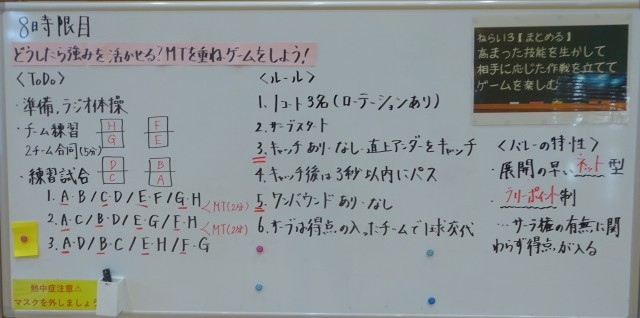 8時限目
どうしたら強みを活かせる？MTを重ねゲームをしよう！
＜ToDo＞
・準備、ラジオ体操
・チーム練習
2チーム合同(5分)
H
G
F
E
・練習試合
D
C
B
A
1. A・B/C・D/E・F/G・H
＜MT(2分)
2. A・C/B・D/E・G/F・H
＜MT(2分)
3. A・D/B・C/E・H/F・G
熱中症注意⚠
マスクを外しましょう
＜ルール＞
1. 1コート3名(ローテーションあり)
2. サーブスタート
3. キャッチあり・なし・直上アンダーをキャッチ
4. キャッチ後は3秒以内にパス
5. ワンバウンドあり・なし
6. サーブは得点の入ったチームで1球交代
ねらい3【まとめる】
高まった技能を生かして
相手に応じた作戦を立てて
ゲームを楽しむ
＜バレーの特性＞
・展開の早いネット型
ラリーポイント制
…サーブ権の有無に関
わらず得点が入る